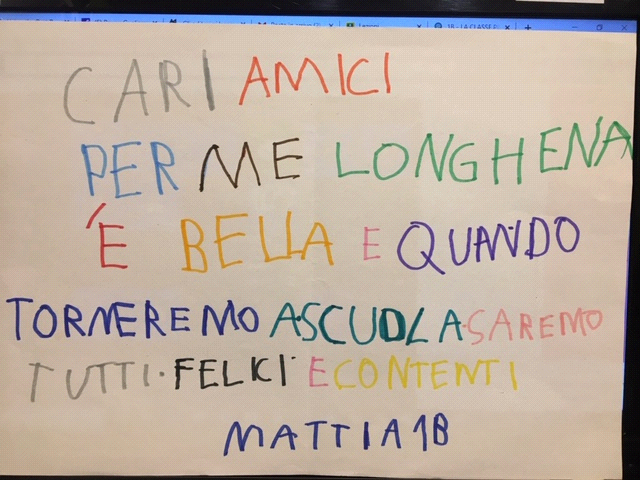 CARI AMICI
PER ME LONGHENA
È BELLA E QUANDO
TORNEREMO A·SCUOLA·SAREMO
TUTTI·FELICI E CONTENTI
MATTIA 1B